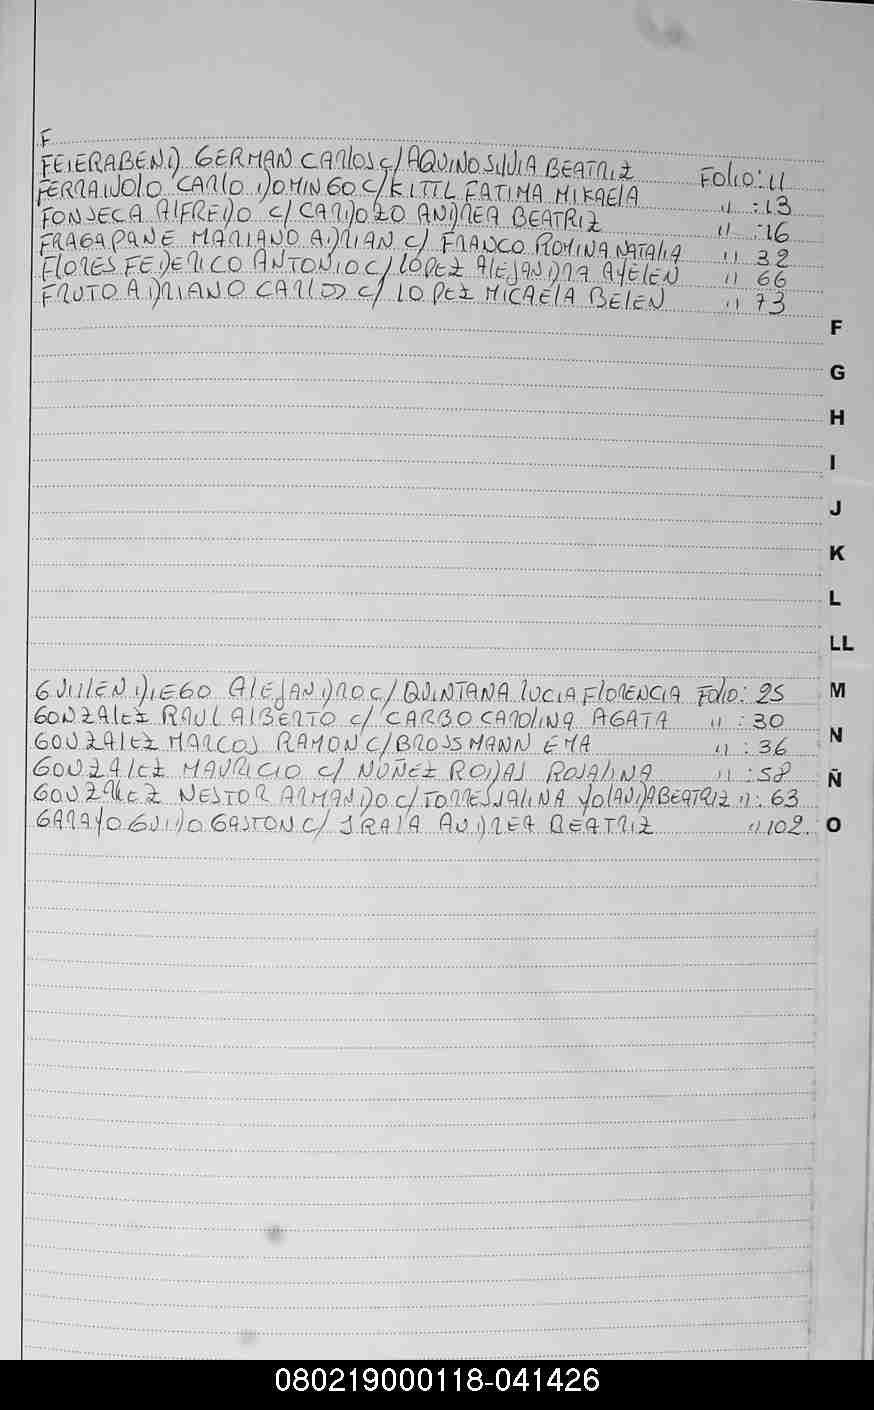 F
FEIERABEND GERMAN CARLOS C/ AQUINO SILVIA BEATRIZ FOLIO: 11
FERRAIUOLO CARLO DOMINGO C/ KITTL FATIMA MIKAELA " : 13
FONSECA ALFREDO C/ CARDOZO ANDREA BEATRIZ " : 16
FRAGAPANE MARIANO ADRIAN C/ FRANCO ROMINA NATALIA " 32
FLORES FEDERICO ANTONIO C/ LOPEZ ALEJANDRA AYELEN " 66
FRUTO ADRIANO CARLOS C/ LOPEZ MICAELA BELEN " 73
F
G
H
I
J
K
L
LL
GUILLEN DIEGO ALEJANDRO C/ QUINTANA LUCIA FLORENCIA FOLIO: 25
M
GONZALEZ RAUL ALBERTO C/ CARBO CAROLINA AGATA " : 30
GONZALEZ MARCOS RAMON C/ BROSSMANN EMA " : 36
N
GONZALEZ MAURICIO C/ NUÑEZ RODAS ROSALINA " : 58
Ñ
GONZALEZ NESTOR ARMANDO C/ TORRES SALINA YOLANDA BEATRIZ " : 63
GARAYO GUIDO GASTON C/ IRALA ANDREA BEATRIZ " 102.
O
080219000118-041426